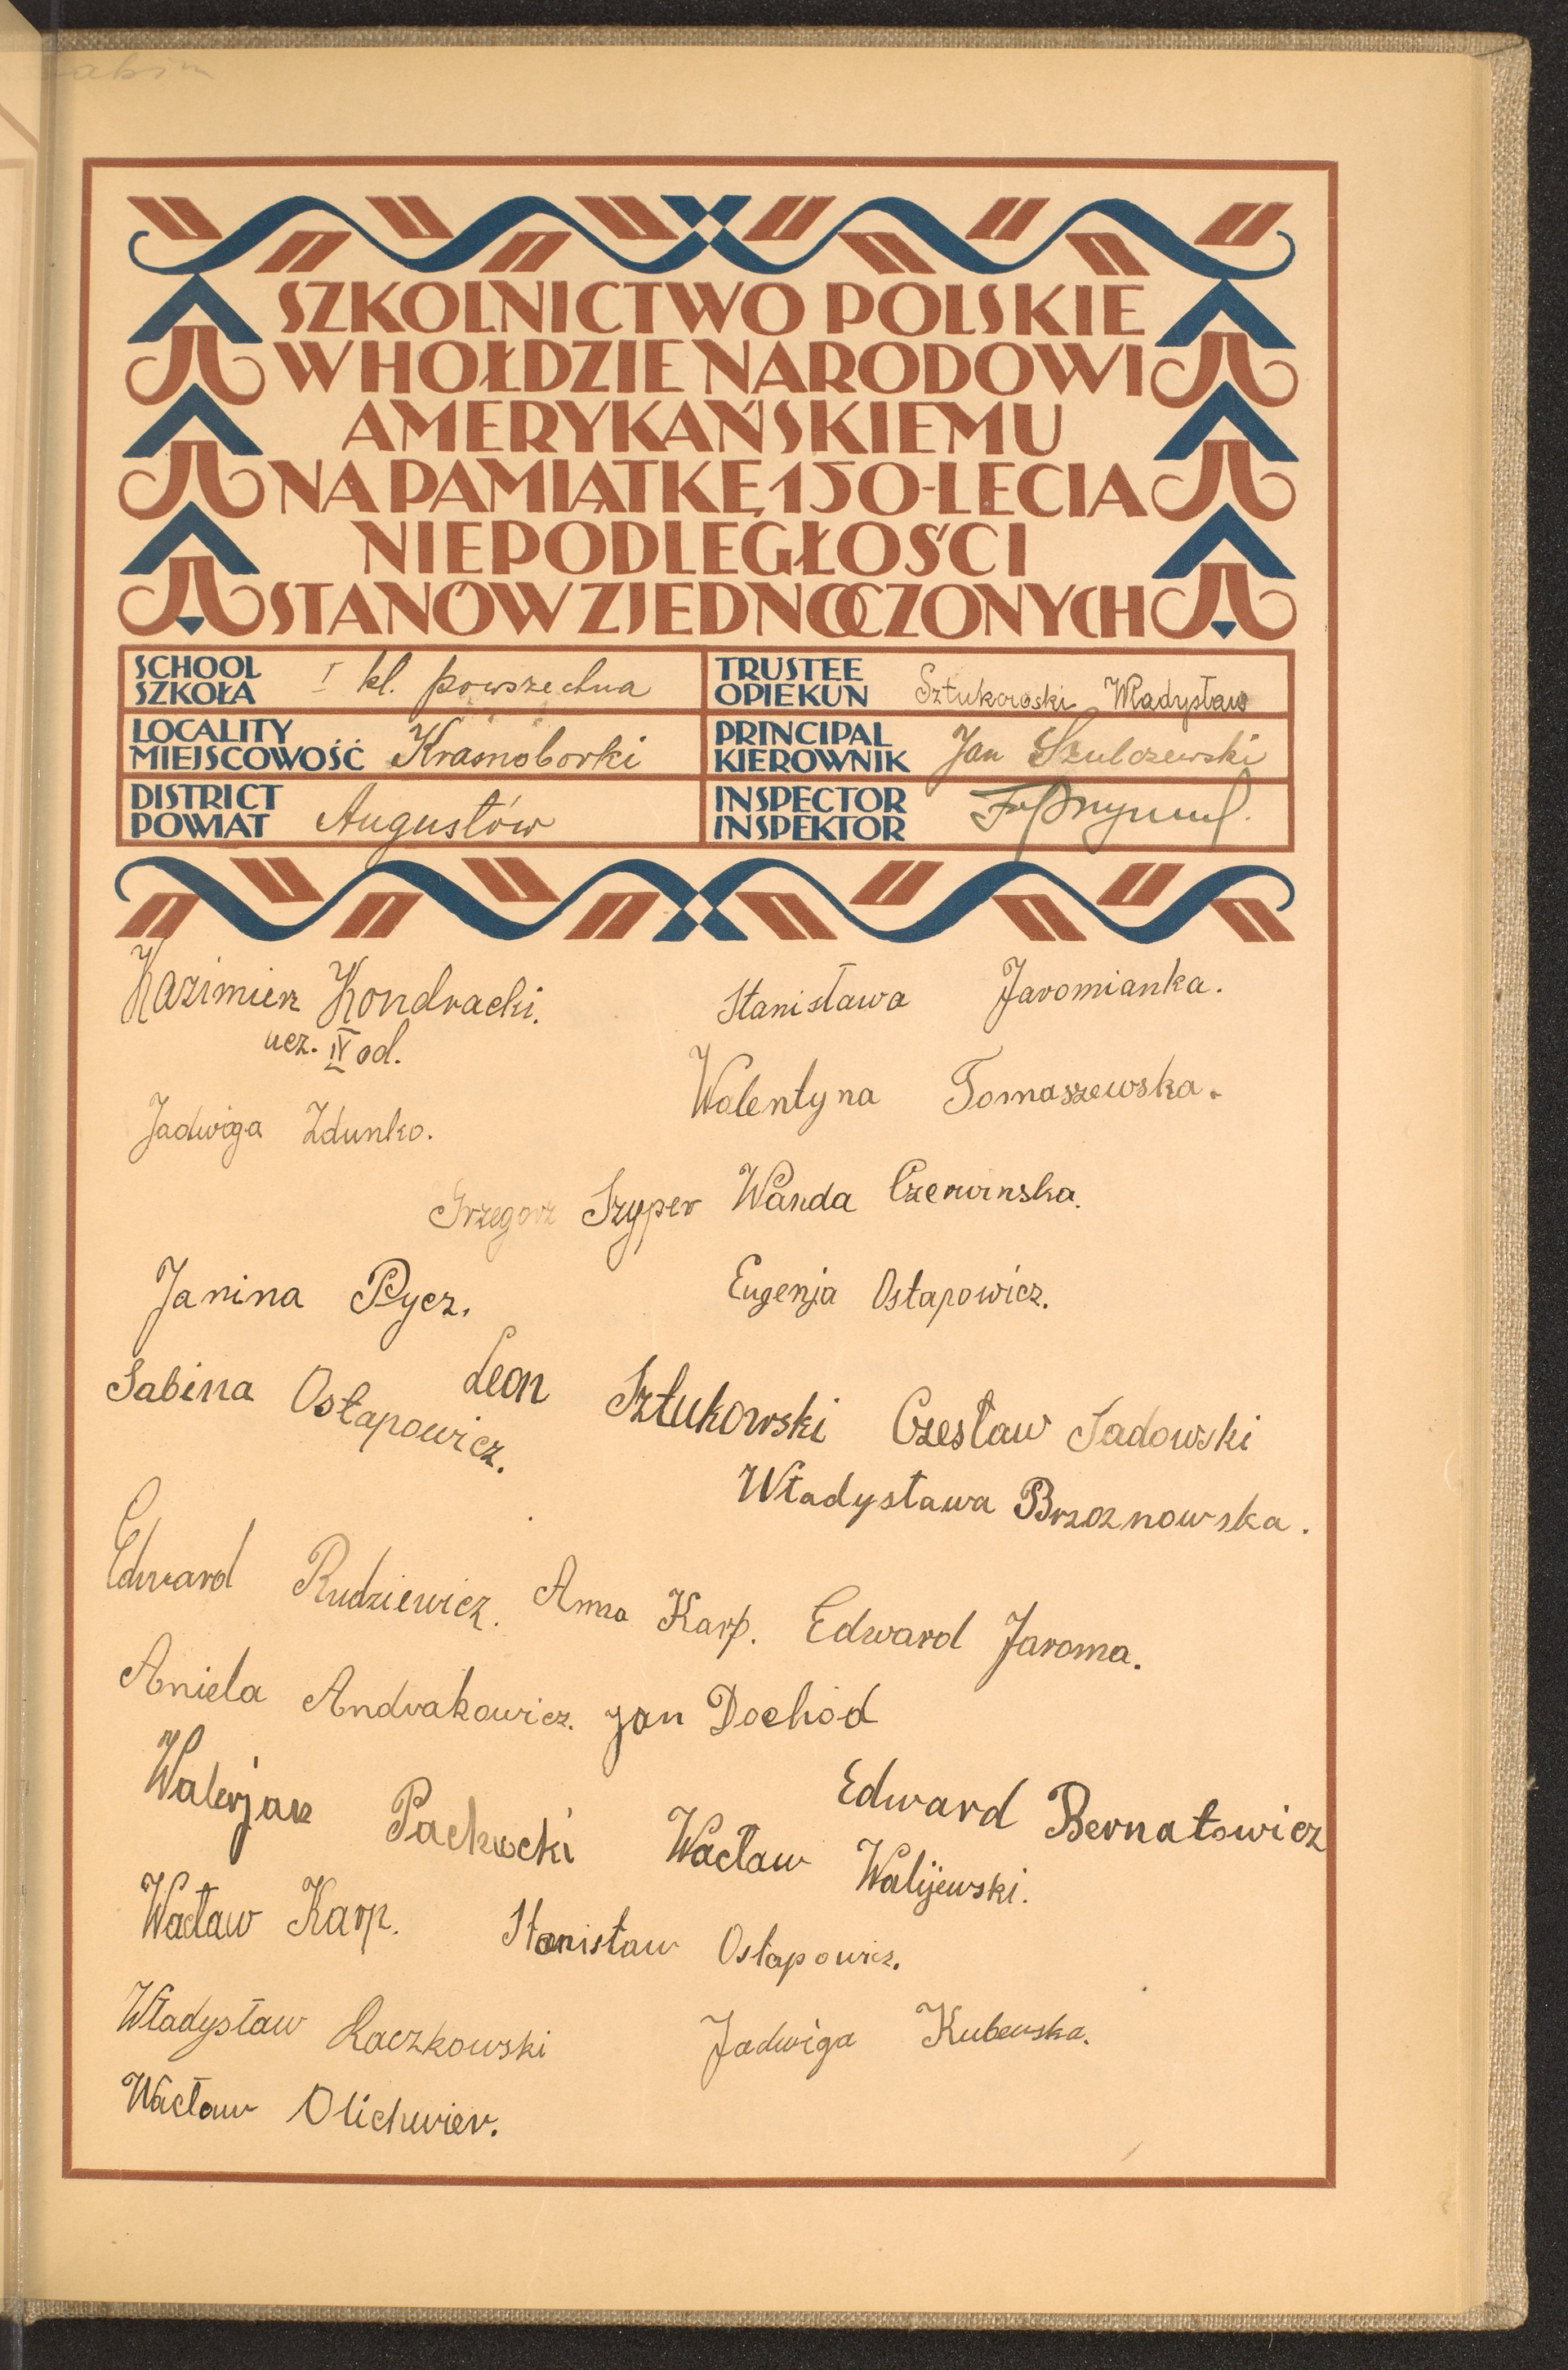 SZKOLNICTWO POLSKIE
W HOŁDZIE NARODOWI
AMERYKAŃSKIEMU
NA PAMIĄTKĘ 150-LECIA
NIEPODLEGŁOŚCI
STANÓW ZJEDNOCZONYCH
SCHOOL
SZKOŁA I kl. powszechna
TRUSTEE
OPIEKUN Sztukowski Władysław
LOCALITY
MIEJSCOWOŚĆ Krasnoborki
PRINCIPAL
KIEROWNIK Jan Szulczewski
DISTRICT
POWIAT Augustów
INSPECTOR
INSPEKTOR
Kazimierz Kondracki.
ucz. IV od.
Stanisława Jaromianka.
Jadwiga Zdunko.
Walentyna Tomaszewska.
Grzegorz Szyper
Wanda Czerwinska.
Janina Pycz.
Eugenja Ostapowicz.
Sabina Ostapowicz.
Leon Sztukowski
Czesław Sadowski
Władysława Brzoznowska.
Edward Rudziewicz.
Anna Karp.
Edward Jaroma.
Aniela Andrakowicz.
jan Dochód
Walerjan
Edward Bernatowicz
Wacław Walijewski.
Wacław Karp.
Stanisław Ostapowicz.
Władysław Raczkowski
Jadwiga Kubewska.
Wacław Olichwier.